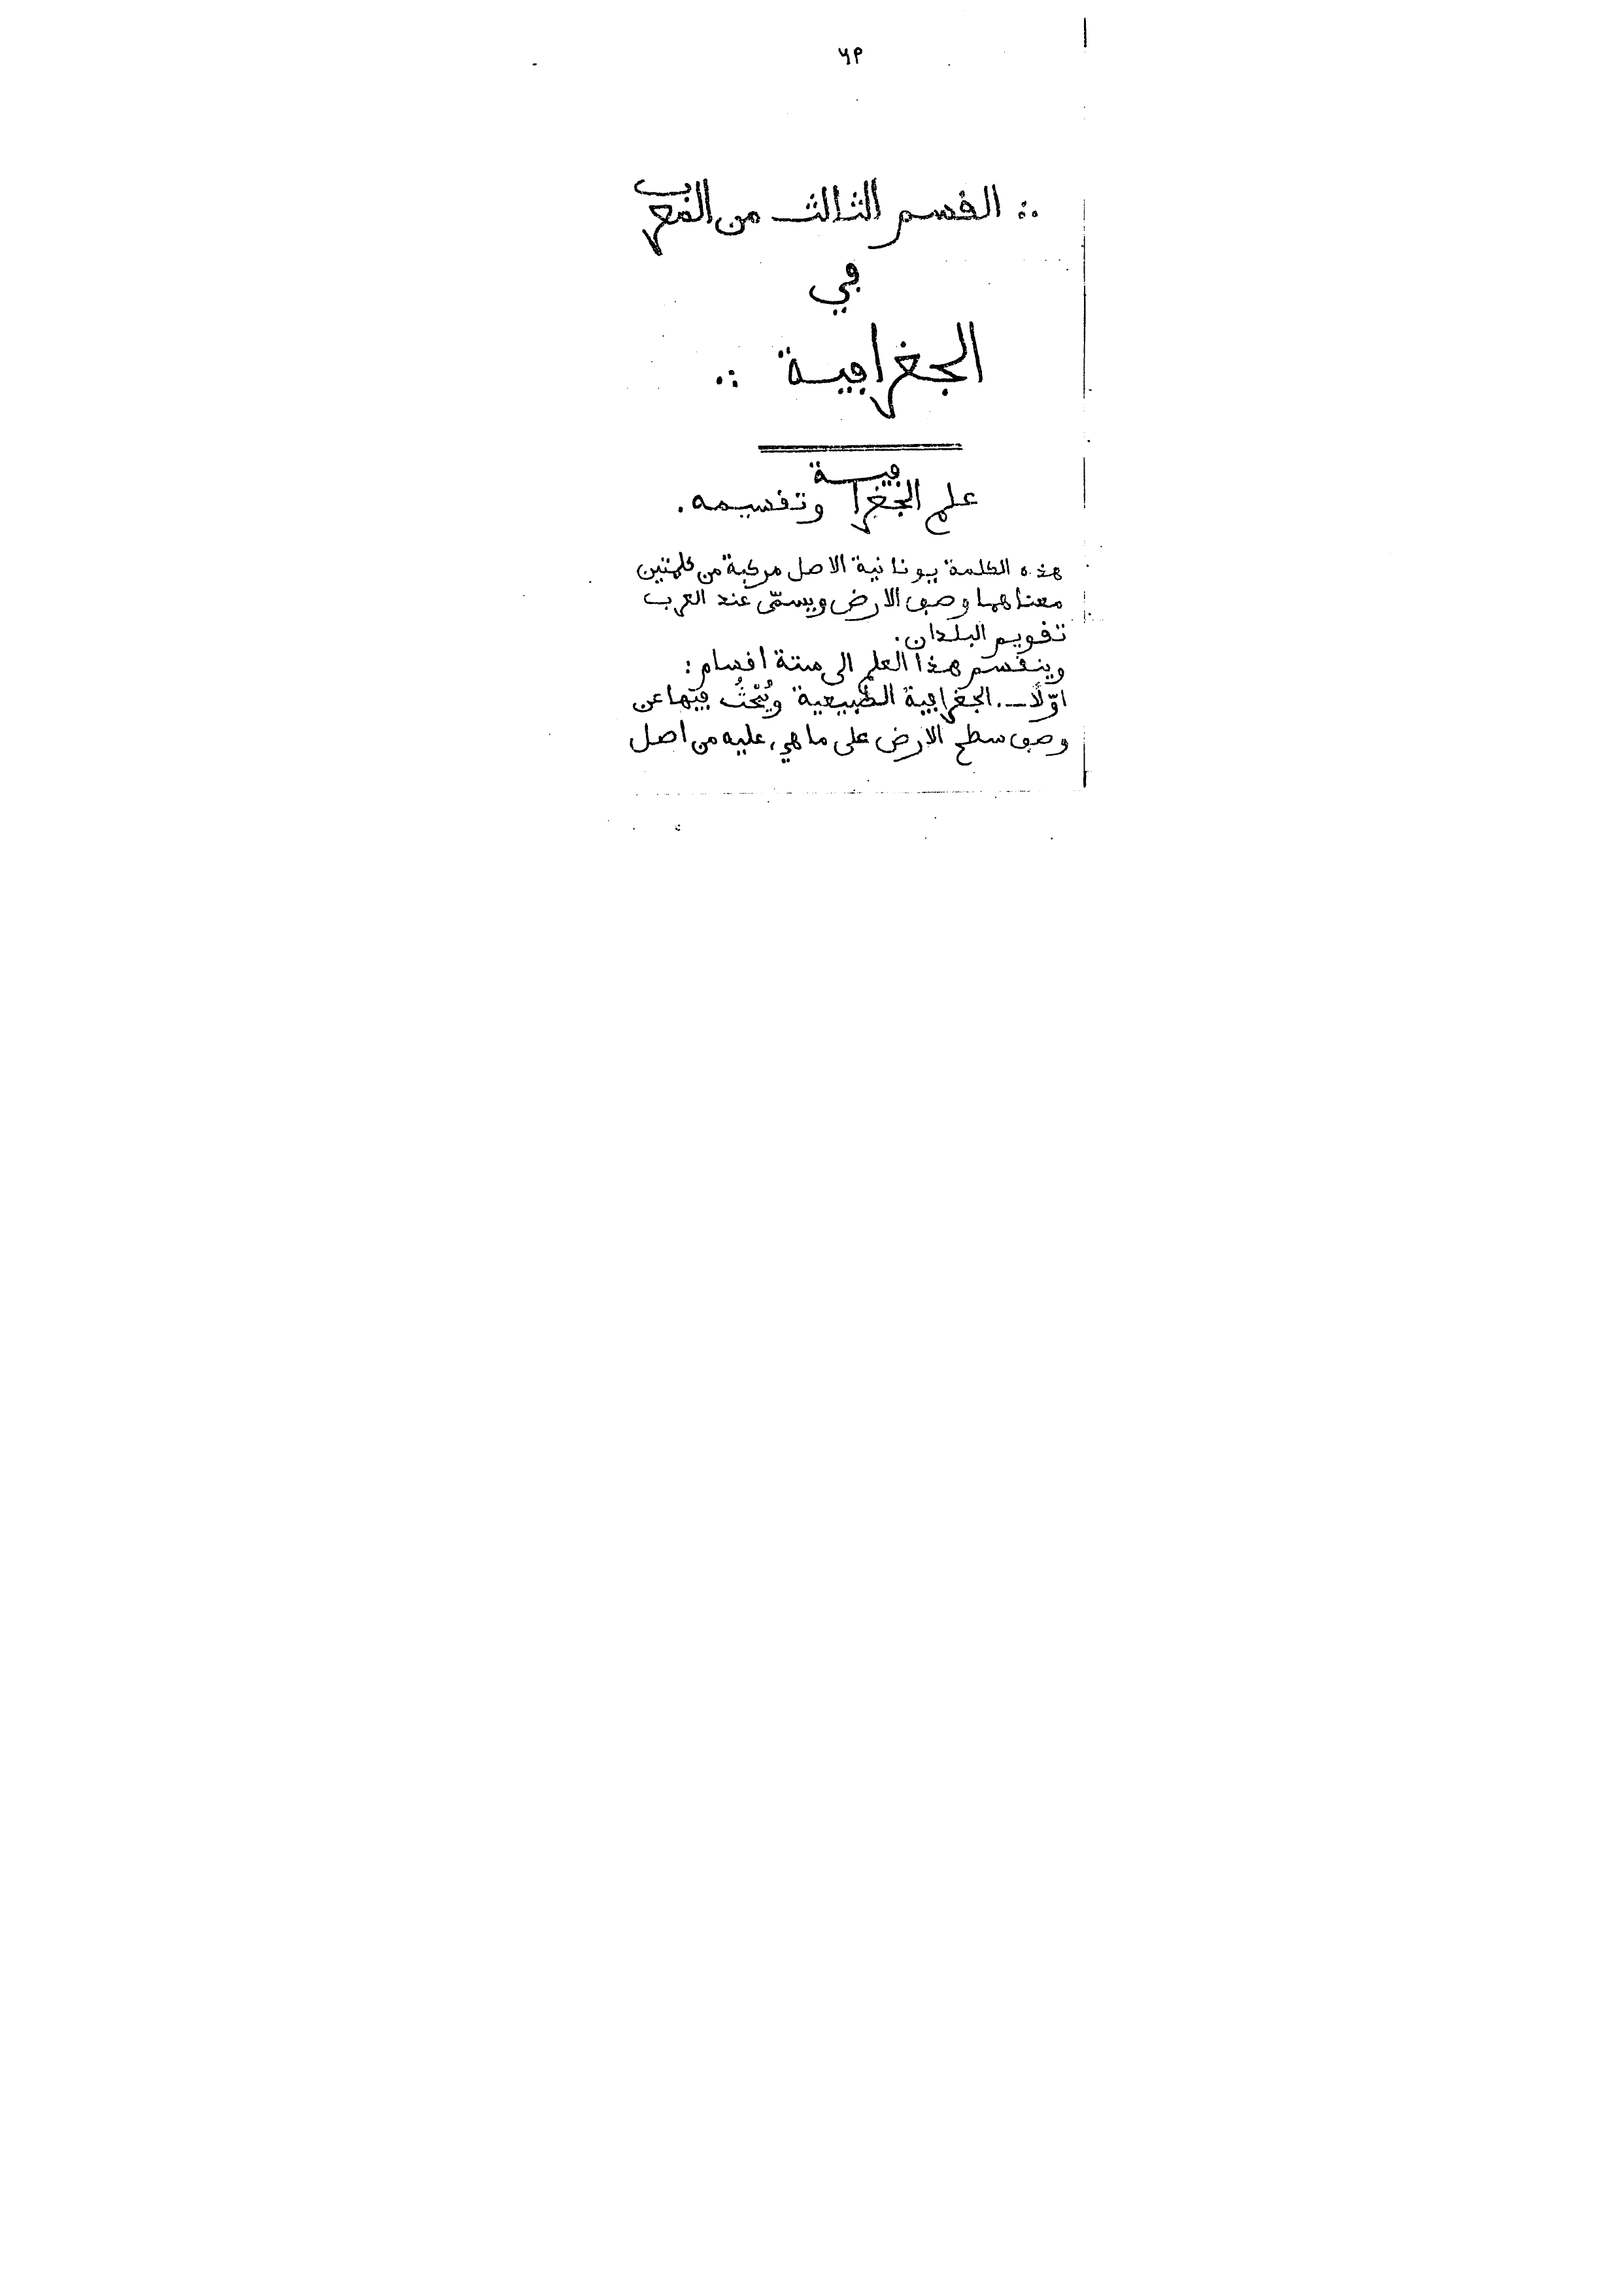 ∴ القسم الثالث من المغرب
في
الجغرافية ∴
علم الجغرافية وتقسيمه.
هذه الكلمة يونانية الاصل مركبة من كلمتين
معناهما وصف الارض ويسمّى عند العرب
تقويم البلدان.
وينقسم هذا العلم الى ستة اقسام :
اوّلًا ــ. الجغرافية الطبيعية ويُبْحثُ فيها عن
وصف سطح الارض على ما هي عليه من اصل